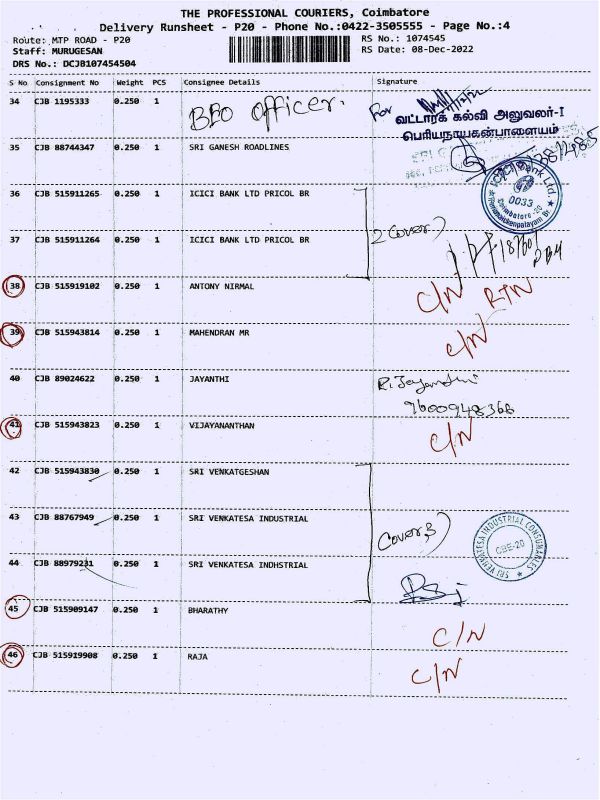 THE PROFESSIONAL COURIERS, Coimbatore
Delivery Runsheet - P20 - Phone No.:0422-3505555 - Page No.:4
Route: MTP ROAD - P20 RS No.: 1074545
Staff: MURUGESAN RS Date: 08-Dec-2022
DRS No.: DCJB107454504
S No Consignment No Weight PCS Consignee Details Signature
34 CJB 1195333 0.250 1 BEO Officer. For
வட்டாரக் கல்வி அலுவலர்-I
பெரியநாயகன்பாளையம்
35 CJB 88744347 0.250 1 SRI GANESH ROADLINES
36 CJB 515911265 0.250 1 ICICI BANK LTD PRICOL BR
ICICI Bank Ltd
0033
Coimbatore-20
37 CJB 515911264 0.250 1 ICICI BANK LTD PRICOL BR 2 Cover)
38 CJB 515919102 0.250 1 ANTONY NIRMAL C/N RTN
39 CJB 515943814 0.250 1 MAHENDRAN MR C/N
40 CJB 89024622 0.250 1 JAYANTHI R. Jayanthi
9600948366
41 CJB 515943823 0.250 1 VIJAYANANTHAN C/N
42 CJB 515943830 0.250 1 SRI VENKATGESHAN
43 CJB 88767949 0.250 1 SRI VENKATESA INDUSTRIAL Cover,3)
SRI VENKATESA INDUSTRIAL CONSUMABLES
CBE-20
44 CJB 88979231 0.250 1 SRI VENKATESA INDHSTRIAL
45 CJB 515909147 0.250 1 BHARATHY C/N
46 CJB 515919908 0.250 1 RAJA C/N